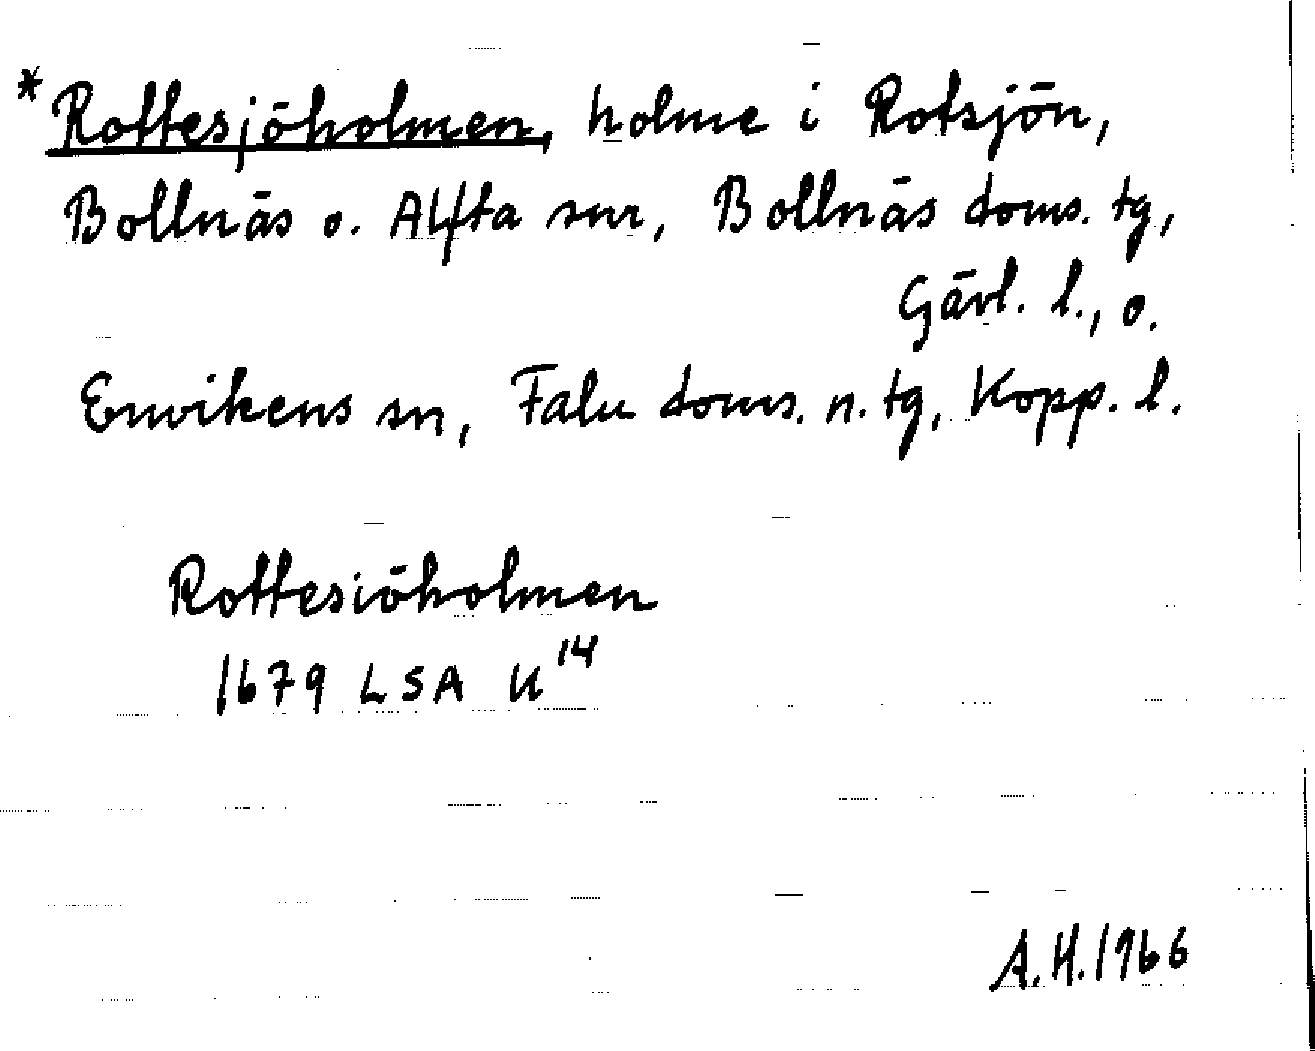 *Rottesjöholmen, holme i Rotsjön,
Bollnäs o. Alfta snr, Bollnäs doms. tg,
Gävl. l., o.
Envikens sn, Falu doms. n. tg, Kopp. l.
Rottesiöholmen
1679 LSA U¹⁴
A.H. 1966